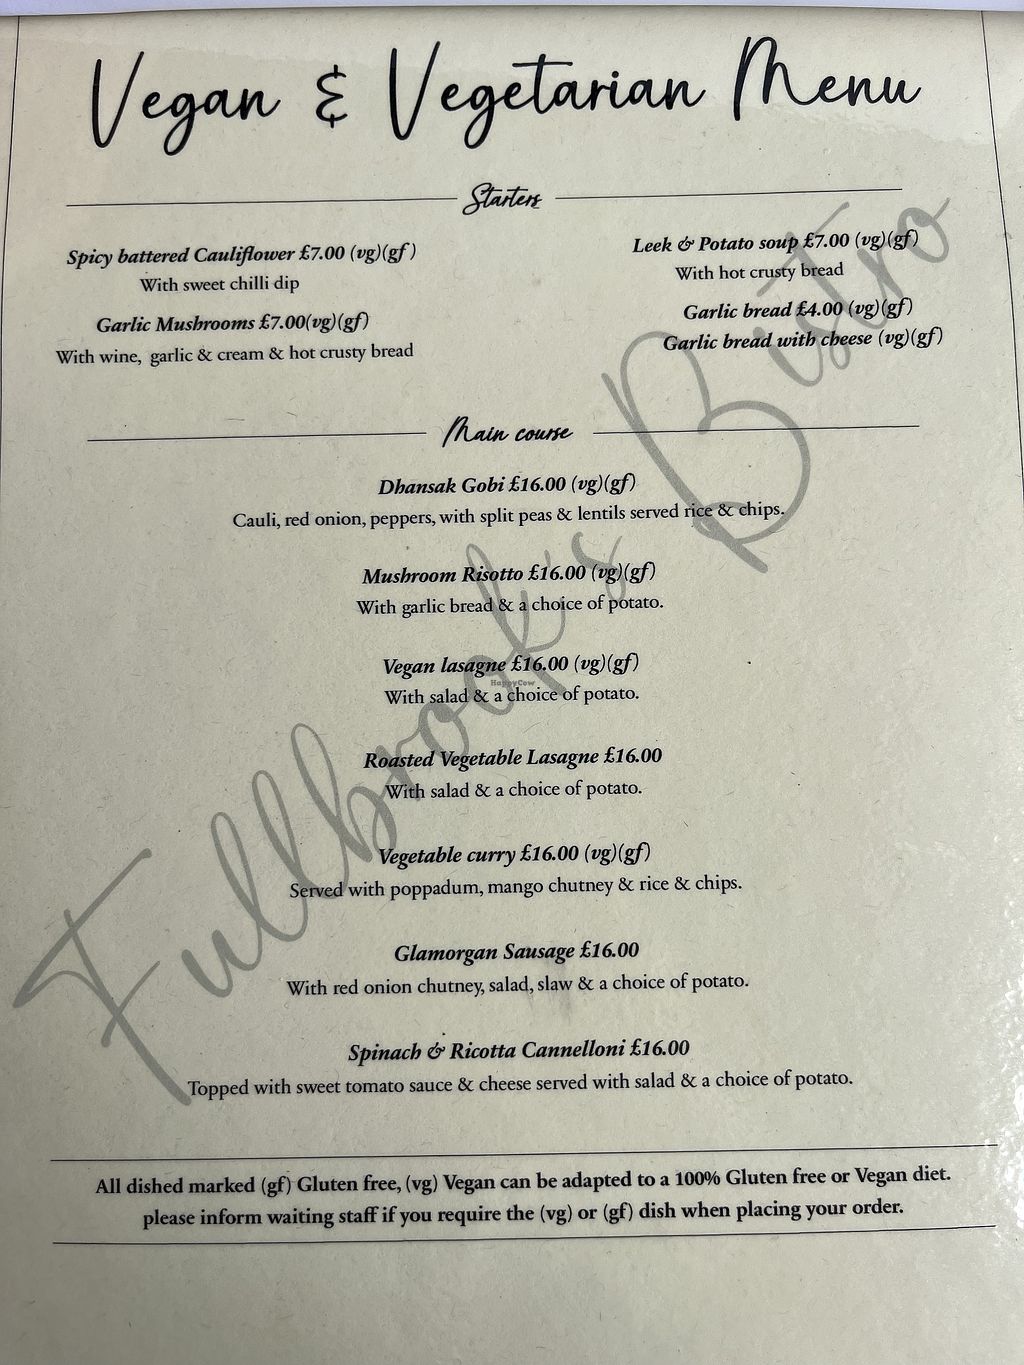 Vegan & Vegetarian Menu
Starters
Spicy battered Cauliflower £7.00 (vg)(gf)
With sweet chilli dip
Garlic Mushrooms £7.00(vg)(gf)
With wine, garlic & cream & hot crusty bread
Leek & Potato soup £7.00 (vg)(gf)
With hot crusty bread
Garlic bread £4.00 (vg)(gf)
Garlic bread with cheese (vg)(gf)
Main course
Dhansak Gobi £16.00 (vg)(gf)
Cauli, red onion, peppers, with split peas & lentils served rice & chips.
Mushroom Risotto £16.00 (vg)(gf)
With garlic bread & a choice of potato.
Vegan lasagne £16.00 (vg)(gf)
With salad & a choice of potato.
Roasted Vegetable Lasagne £16.00
With salad & a choice of potato.
Vegetable curry £16.00 (vg)(gf)
Served with poppadum, mango chutney & rice & chips.
Glamorgan Sausage £16.00
With red onion chutney, salad, slaw & a choice of potato.
Spinach & Ricotta Cannelloni £16.00
Topped with sweet tomato sauce & cheese served with salad & a choice of potato.
All dished marked (gf) Gluten free, (vg) Vegan can be adapted to a 100% Gluten free or Vegan diet.
please inform waiting staff if you require the (vg) or (gf) dish when placing your order.
Fullbrook's Bistro
HappyCow